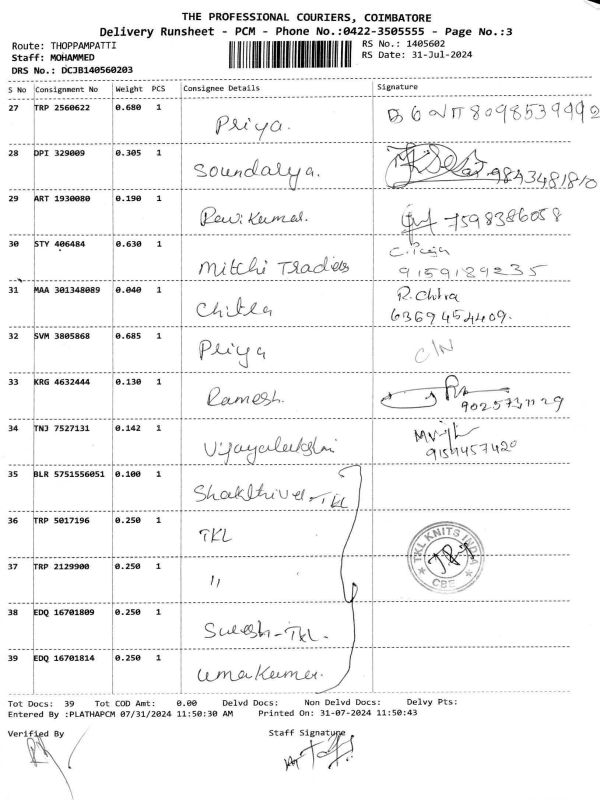 THE PROFESSIONAL COURIERS, COIMBATORE
Delivery Runsheet - PCM - Phone No.:0422-3505555 - Page No.:3
Route: THOPPAMPATTI RS No.: 1405602
Staff: MOHAMMED RS Date: 31-Jul-2024
DRS No.: DCJB140560203
S No Consignment No Weight PCS Consignee Details Signature
27 TRP 2560622 0.680 1 Priya. 8098539992
28 DPI 329009 0.305 1 Soundalya. 9843481810
29 ART 1930080 0.190 1 Ravikumar. 7598386058
30 STY 406484 0.630 1 Mitchi Traders C. Puja 9159189235
31 MAA 301348089 0.040 1 Chitra R. Chitra 6369454409.
32 SVM 3805868 0.685 1 Priya C/N
33 KRG 4632444 0.130 1 Ramesh.
34 TNJ 7527131 0.142 1 Vijayalakshmi 9159457420
35 BLR 5751556051 0.100 1 Shakthivel-TKL
36 TRP 5017196 0.250 1 TKL
37 TRP 2129900 0.250 1 11 TKL KNITS INDIA CBE
38 EDQ 16701809 0.250 1 Suresh-TKL.
39 EDQ 16701814 0.250 1 Umakumar.
Tot Docs: 39 Tot COD Amt: 0.00 Delvd Docs: Non Delvd Docs: Delvy Pts:
Entered By :PLATHAPCM 07/31/2024 11:50:30 AM Printed On: 31-07-2024 11:50:43
Verified By Staff Signature